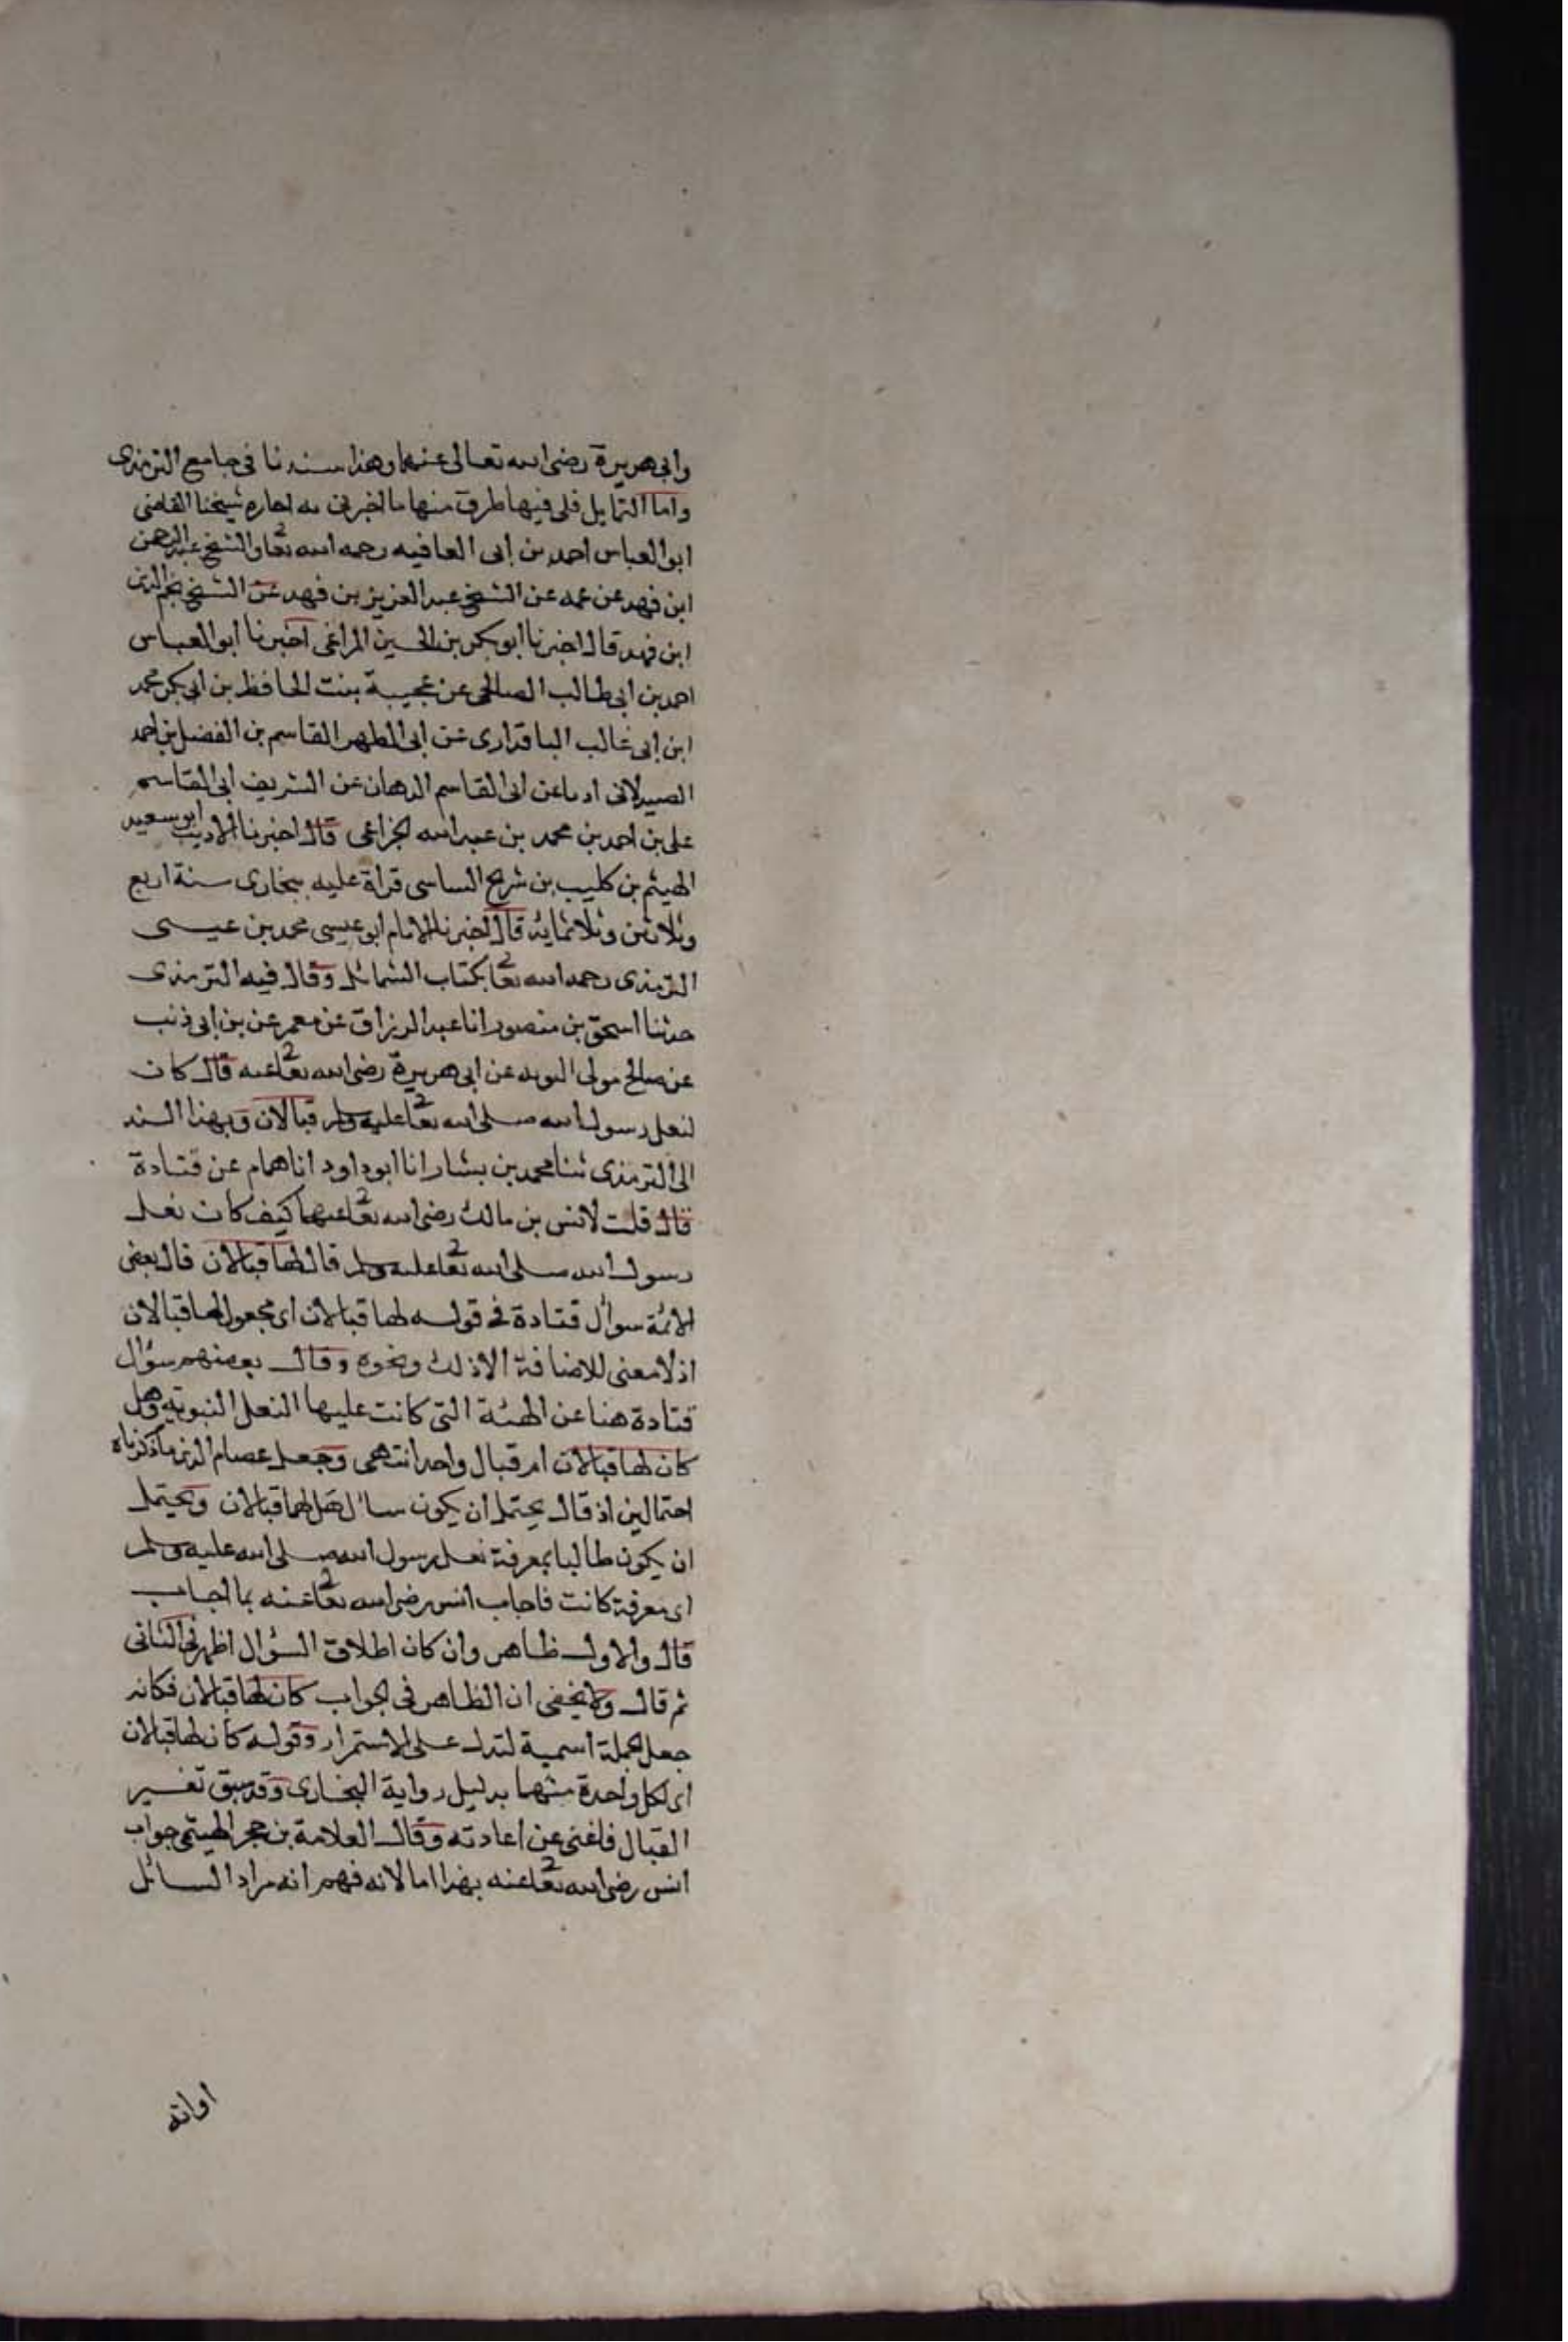 وابى هريرة رضى الله تعالى عنهما وهذا سندنا فى جامع الترمذى
واما الشمايل فلى فيها طرق منها ما اخبرنى به اجازه شيخنا القاضى
ابو العباس احمد بن ابى العافيه رحمه الله تعا والشيخ عبد الرحمن
ابن فهد عن عمه عن الشيخ عبد العزيز بن فهد عن الشيخ نجم الدين
ابن فهد قال اخبرنا ابو بكر بن الحسين المراغى اخبرنا ابو العباس
احمد بن ابى طالب الصالحى عن عجيبة بنت الحافظ بن ابى بكر محمد
ابن ابى غالب الباقدارى عن ابى المطهر القاسم بن الفضل بن احمد
الصيدلانى عن ابى القاسم الدهان عن الشريف ابى القاسم
على بن احمد بن محمد بن عبد الله الخزاعى قال اخبرنا الاديب ابو سعيد
الهيثم بن كليب بن شريح الساسى قراة عليه ببخارى سنة اربع
وثلاثين وثلاثمايه قال اخبرنا الامام ابو عيسى محمد بن عيسى
الترمذى رحمه الله تعا بكتاب الشمائل وقال فيه الترمذى
حدثنا اسحق بن منصور انا عبد الرزاق عن معمر عن بن ابى ذئب
عن صالح مولى التومه عن ابى هريرة رضى الله تعا عنه قال كان
لنعل رسول الله صلى الله تعا عليه وسلم قبالان وبهذا السند
الى الترمذى ثنا محمد بن بشار انا ابو داود انا همام عن قتادة
قال قلت لانس بن مالك رضى الله تعا عنهما كيف كان نعل
رسول الله صلى الله تعا عليه وسلم قال لها قبالان قال بعض
الائمة سوال قتادة فى قوله لها قبالان اى مجعول لها قبالان
اذ لا معنى للاضافة الا ذلك ونحوه وقال بعضهم سؤال
قتادة هنا عن الهيئة التى كانت عليها النعل النبوية وهل
كان لها قبالان ام قبال واحد انتهى وجعل عصام الدين ما ذكرناه
احتمالين اذ قال يحتمل ان يكون سال هل لها قبالان ويحتمل
ان يكون طالبا بمعرفة نعل رسول الله صلى الله عليه وسلم
اى معرفة كانت فاجاب انس رضى الله تعا عنه بما اجاب
قال والاول ظاهر وان كان اطلاق السؤال اظهر فى الثانى
ثم قال ولا يخفى ان الظاهر فى الجواب كان لها قبالان فكانه
جعل الجملة اسمية لتدل على الاستمرار وقوله كان لها قبالان
اى لكل واحدة منهما بدليل رواية البخارى وقد سبق تفسير
القبال فاغنى عن اعادته وقال العلامة بن حجر الهيتمى جواب
انس رضى الله تعا عنه بهذا اما لانه فهم انه مراد السائل
اوانه